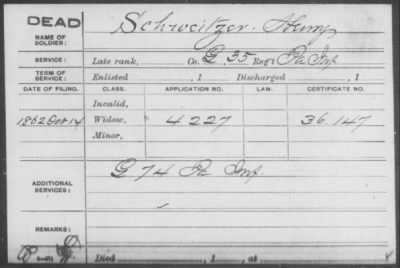 DEAD
NAME OF SOLDIER: Schweitzer, Henry
SERVICE: Late rank, Co. G 35 Reg't Pa Inf
TERM OF SERVICE: Enlisted , 1 Discharged , 1
DATE OF FILING. CLASS. APPLICATION NO. LAW. CERTIFICATE NO.
Invalid,
1862 Oct 14 Widow, 4227 36.147
Minor,
ADDITIONAL SERVICES: G 74 Pa Inf.
REMARKS:
Died , 1 , at